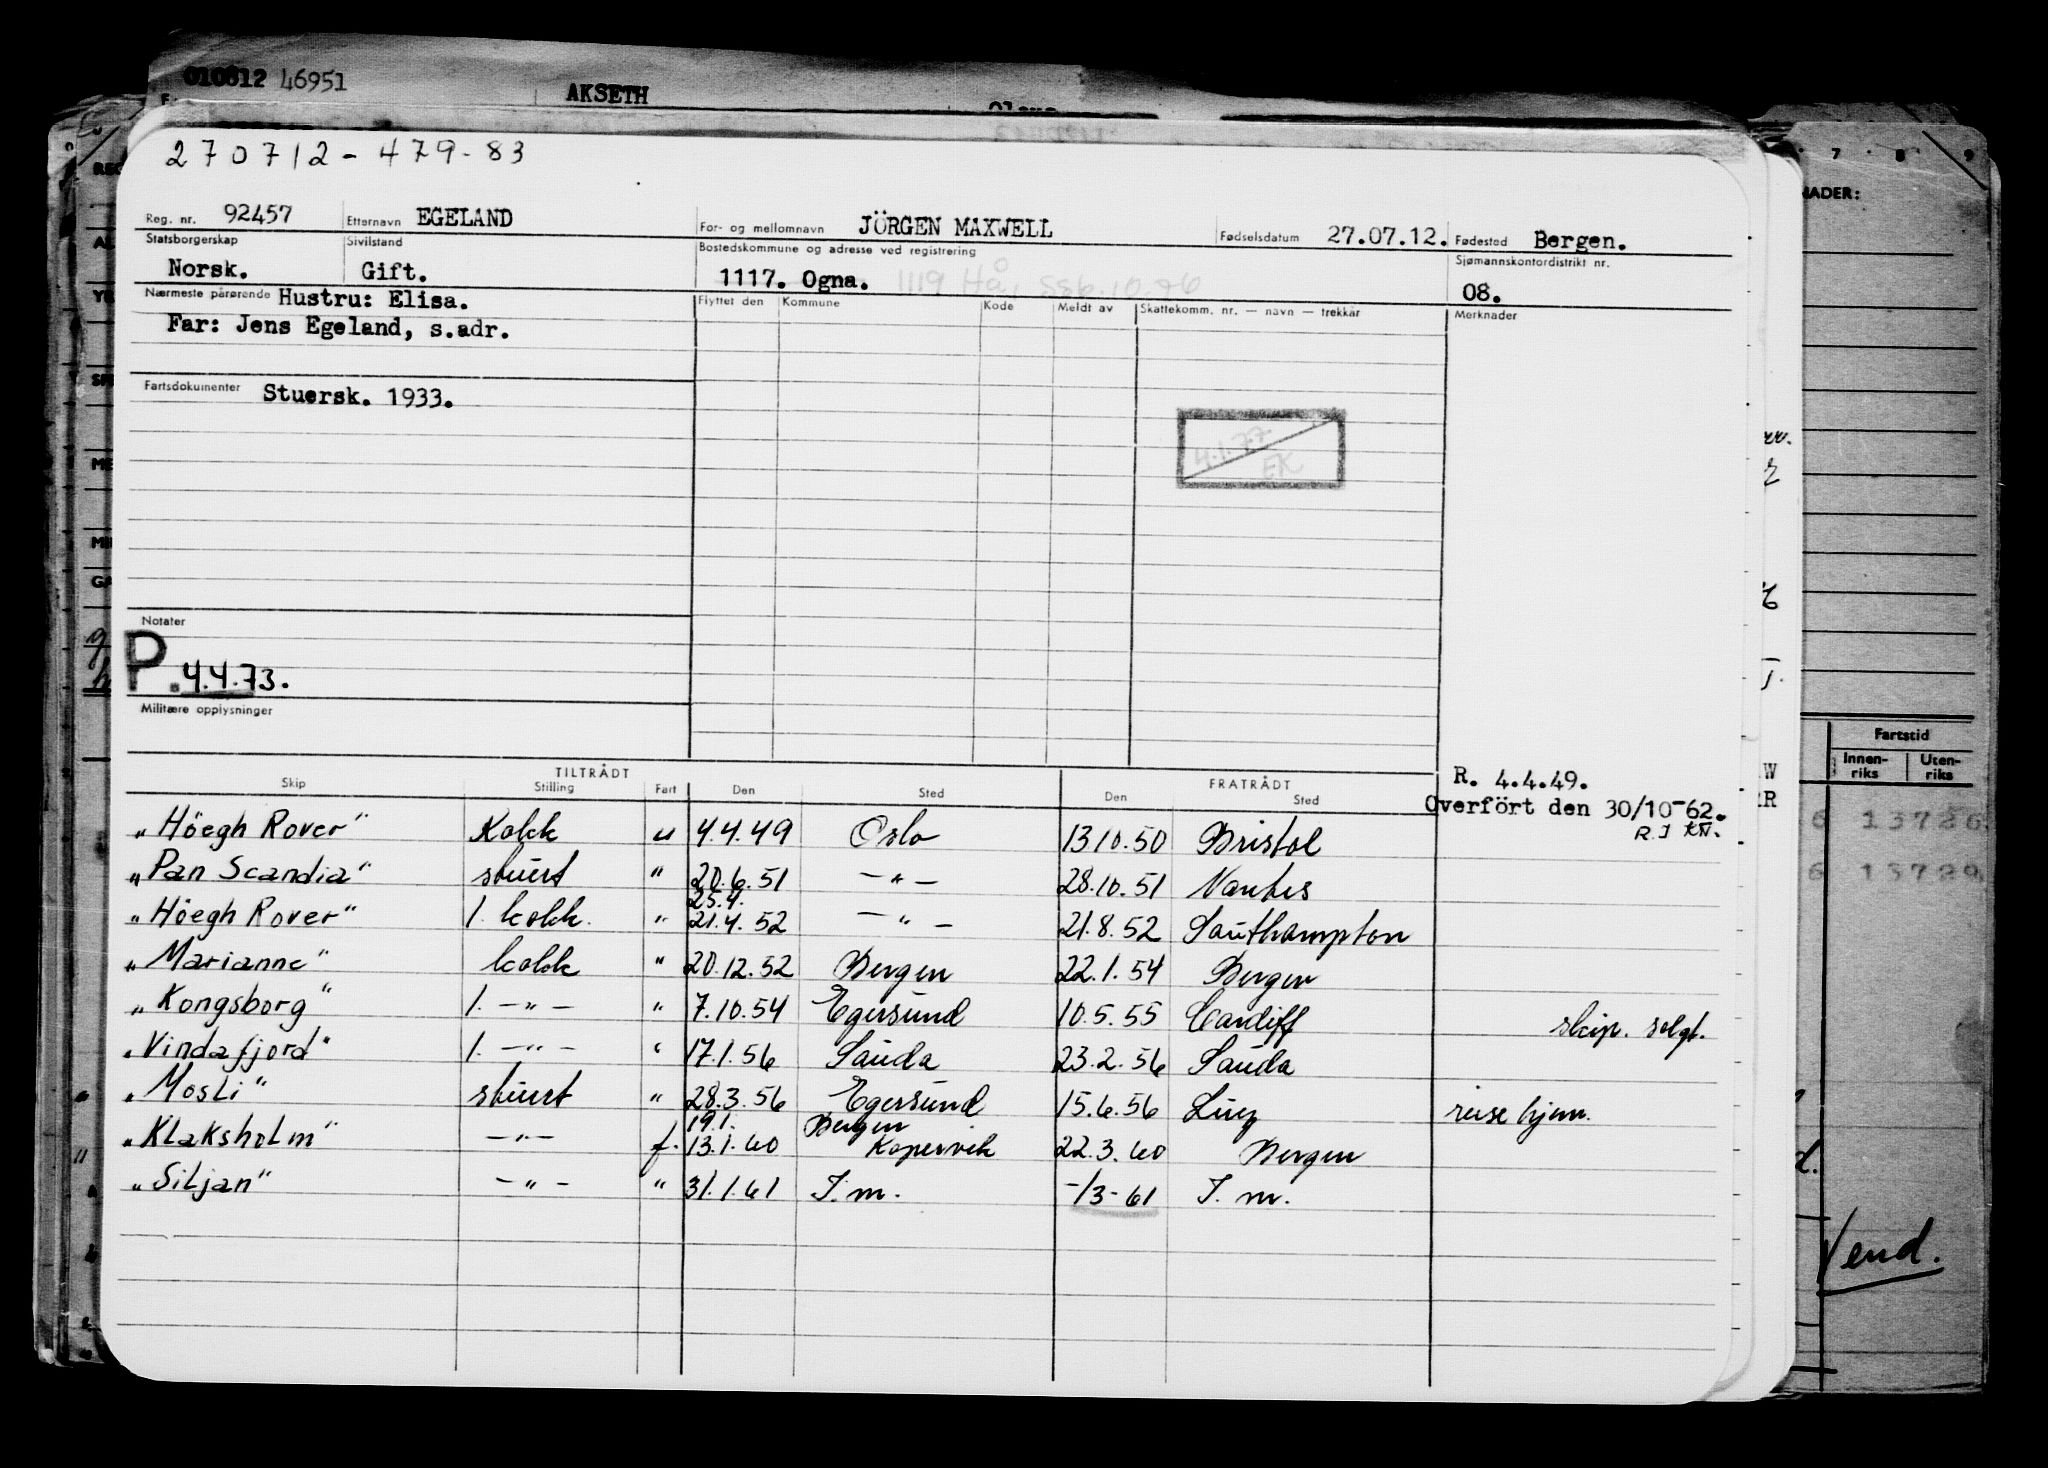 010812 46951
AKSETH
270712-479-83
Reg. nr. 92457 Etternavn EGELAND For- og mellomnavn JÖRGEN MAXWELL Fødselsdatum 27.07.12. Fødested Bergen.
Statsborgerskap Sivilstand Bostedskommune og adresse ved registrering Sjømannskontordistrikt nr.
Norsk. Gift. 1117. Ogna. 1119 Hå, 08.
Nærmeste pårørende Hustru: Elisa. Flyttet den Kommune Kode Meldt av Skattekomm. nr. — navn — trekkår Merknader
Far: Jens Egeland, s.adr.
Fartsdokumenter Stuersk. 1933.
4.1.77
EK
Notater
P. 4.4.73.
Militære opplysninger
TILTRÅDT FRATRÅDT R. 4.4.49.
Skip Stilling Fart Den Sted Den Sted Overfört den 30/10-62.
"Höegh Rover" Kokk u 4.4.49 Oslo 13.10.50 Bristol
"Pan Scandia" stuert " 20.6.51 —"— 28.10.51 Nantes
25.4.
"Höegh Rover" 1. kokk. " 21.4.52 —"— 21.8.52 Southampton
"Marianne" kokk " 20.12.52 Bergen 22.1.54 Bergen
"Kongsborg" 1. —"— " 7.10.54 Egersund 10.5.55 Cardiff skip. solgt.
"Vindafjord" 1. —"— " 17.1.56 Sauda 23.2.56 Sauda
"Mosli" stuert " 28.3.56 Egersund 15.6.56 reise hjem.
19.1. Bergen
"Klaksholm" —"— f. 13.1.60 Kopervik 22.3.60 Bergen
"Siljan" —"— " 31.1.61 I.m. -/3-61 I.m.
7 8 9
NADER:
Fartstid
Innen-riks Uten-riks
Vend.